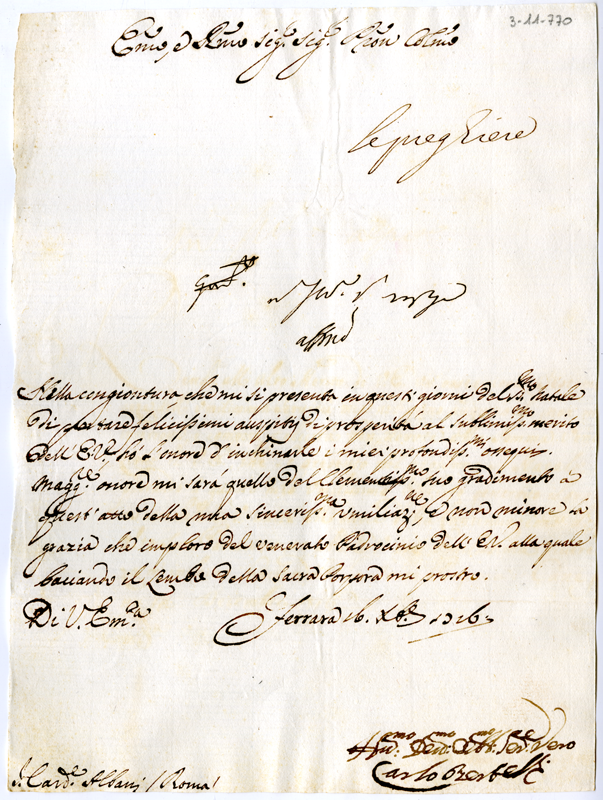 3-11-770
Em̃o, e Rm̃o Sig.r Sig.r Pron Colm̃o
le preghiere
Nella congiontura che mi si presenta in questi giorni del SS.mo Natale
di portare felicissimi auspitij di prosperità al sublimiss.mo merito
dell'E.V. hò l'onore d'inchinarle i miei profondiss.mi ossequi.
Magg.re onore mi sarà quello del Clementiss.mo suo gradimento à
quest'atto della mia sinceriss.ma umiliaz.ne, e non minore la
grazia che imploro del venerato Padrocinio dell'E.V. alla quale
baciando il Lembo della Sacra Porpora mi prostro.
Di V. Em.za Ferrara 16. Xbre 1716.
Um.mo Dev.mo Obb.mo Ser.re Vero
Carlo Bentelli
S.r Card.e Albani / Roma /